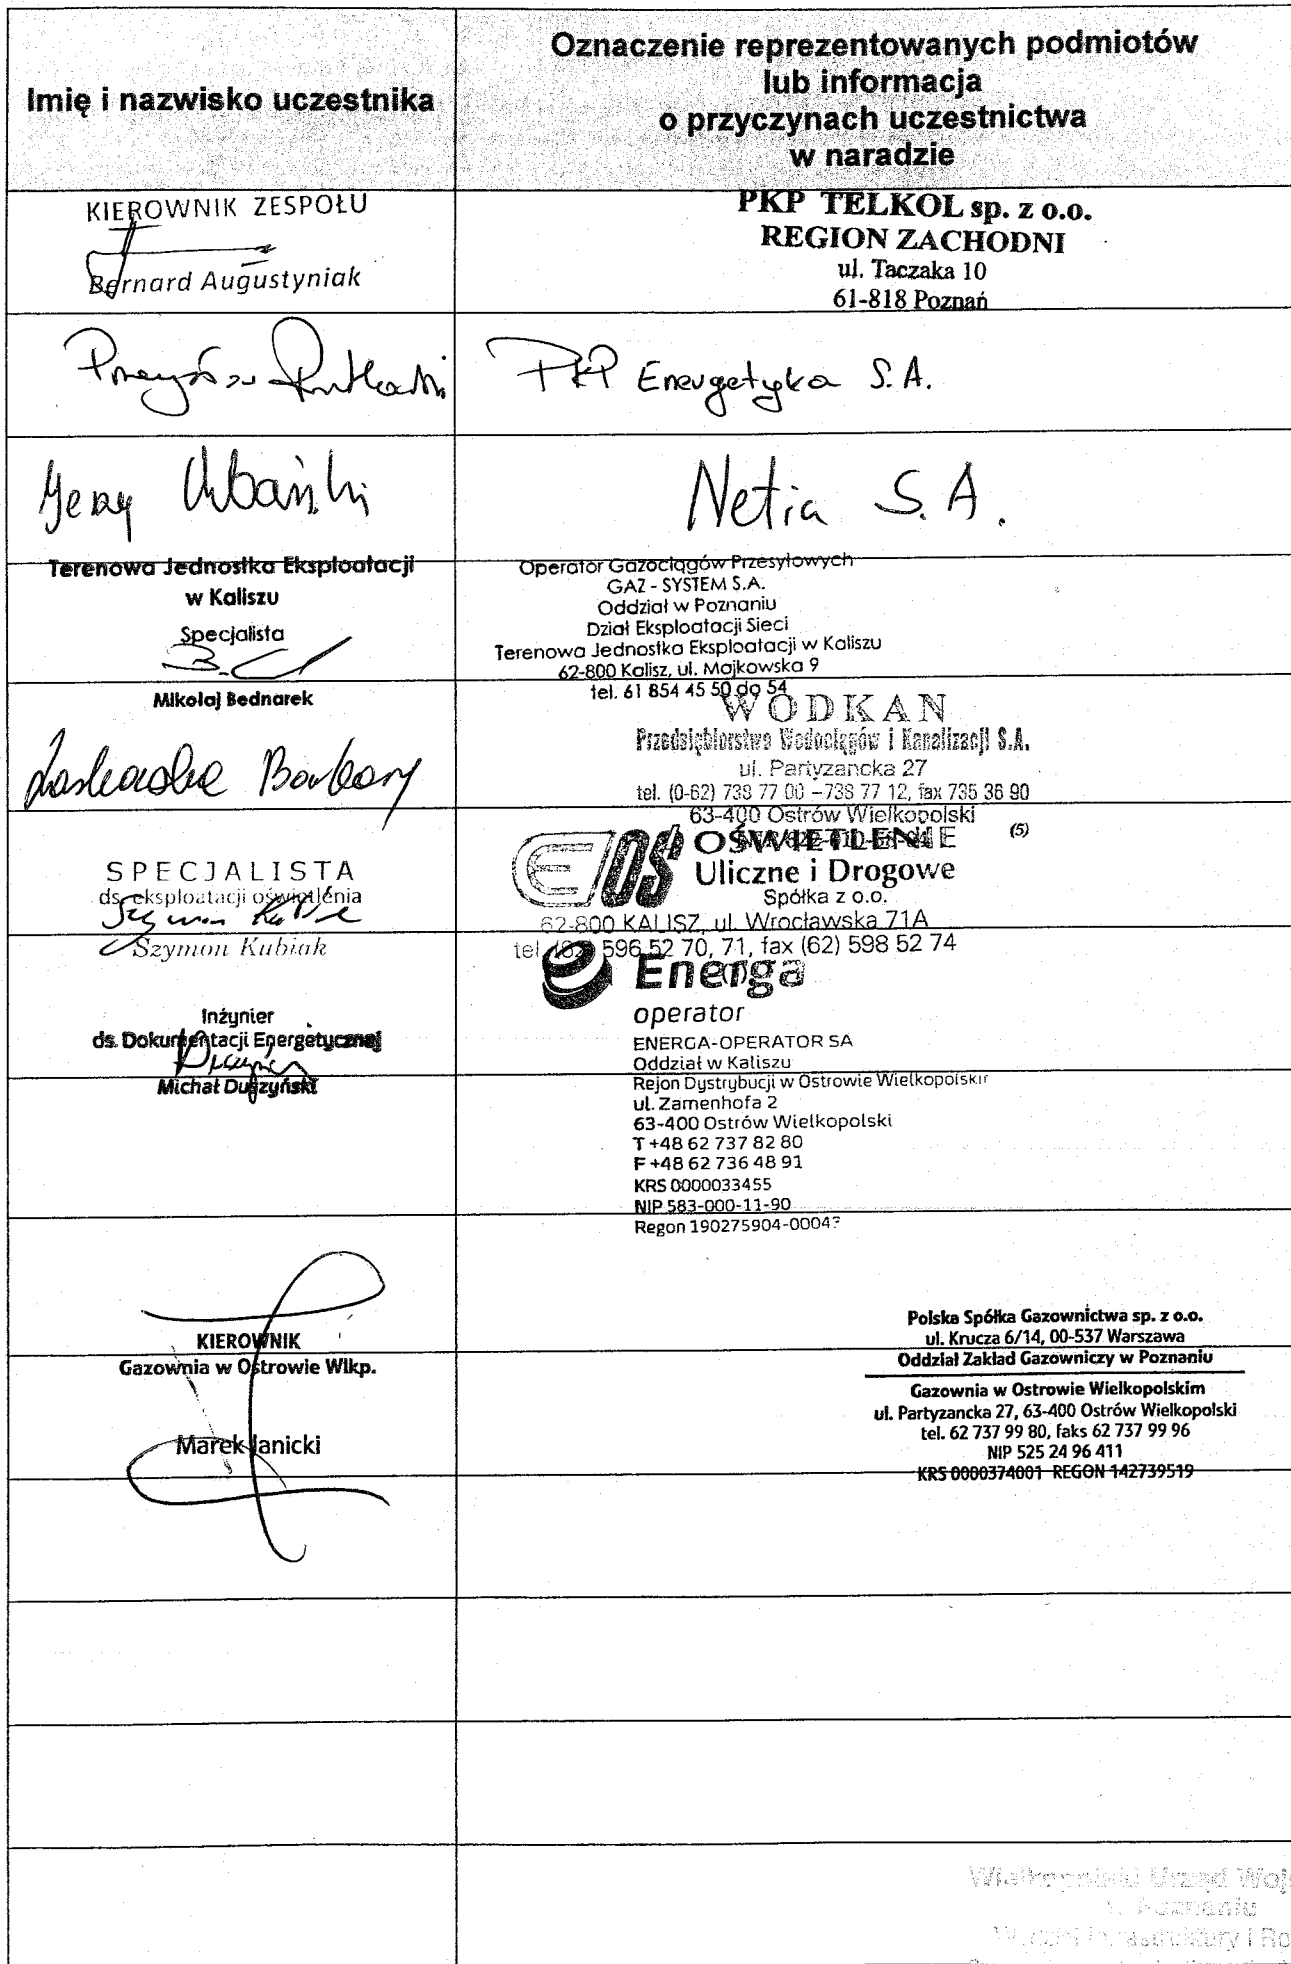 Imię i nazwisko uczestnika
Oznaczenie reprezentowanych podmiotów
lub informacja
o przyczynach uczestnictwa
w naradzie
KIEROWNIK ZESPOŁU
Bernard Augustyniak
PKP TELKOL sp. z o.o.
REGION ZACHODNI
ul. Taczaka 10
61-818 Poznań
PKP Energetyka S.A.
Jerzy Urbański
Netia S.A.
Terenowa Jednostka Eksploatacji
w Kaliszu
Specjalista
Mikołaj Bednarek
Operator Gazociągów Przesyłowych
GAZ - SYSTEM S.A.
Oddział w Poznaniu
Dział Eksploatacji Sieci
Terenowa Jednostka Eksploatacji w Kaliszu
62-800 Kalisz, ul. Majkowska 9
tel. 61 854 45 50 do 54
WODKAN
Przedsiębiorstwo Wodociągów i Kanalizacji S.A.
ul. Partyzancka 27
tel. (0-62) 738 77 00 –738 77 12, fax 735 36 90
63-400 Ostrów Wielkopolski
(5)
SPECJALISTA
ds. eksploatacji oświetlenia
Szymon Kubiak
OŚWIETLENIE
Uliczne i Drogowe
Spółka z o.o.
62-800 KALISZ, ul. Wrocławska 71A
tel. (62) 596 52 70, 71, fax (62) 598 52 74
Inżynier
ds. Dokumentacji Energetycznej
Michał Duszyński
Energa
operator
ENERGA-OPERATOR SA
Oddział w Kaliszu
Rejon Dystrybucji w Ostrowie Wielkopolskim
ul. Zamenhofa 2
63-400 Ostrów Wielkopolski
T +48 62 737 82 80
F +48 62 736 48 91
KRS 0000033455
NIP 583-000-11-90
Regon 190275904-0004
KIEROWNIK
Gazownia w Ostrowie Wlkp.
Marek Janicki
Polska Spółka Gazownictwa sp. z o.o.
ul. Krucza 6/14, 00-537 Warszawa
Oddział Zakład Gazowniczy w Poznaniu
Gazownia w Ostrowie Wielkopolskim
ul. Partyzancka 27, 63-400 Ostrów Wielkopolski
tel. 62 737 99 80, faks 62 737 99 96
NIP 525 24 96 411
KRS 0000374001 REGON 142739519
Wielkopolski Urząd Woj
w Poznaniu